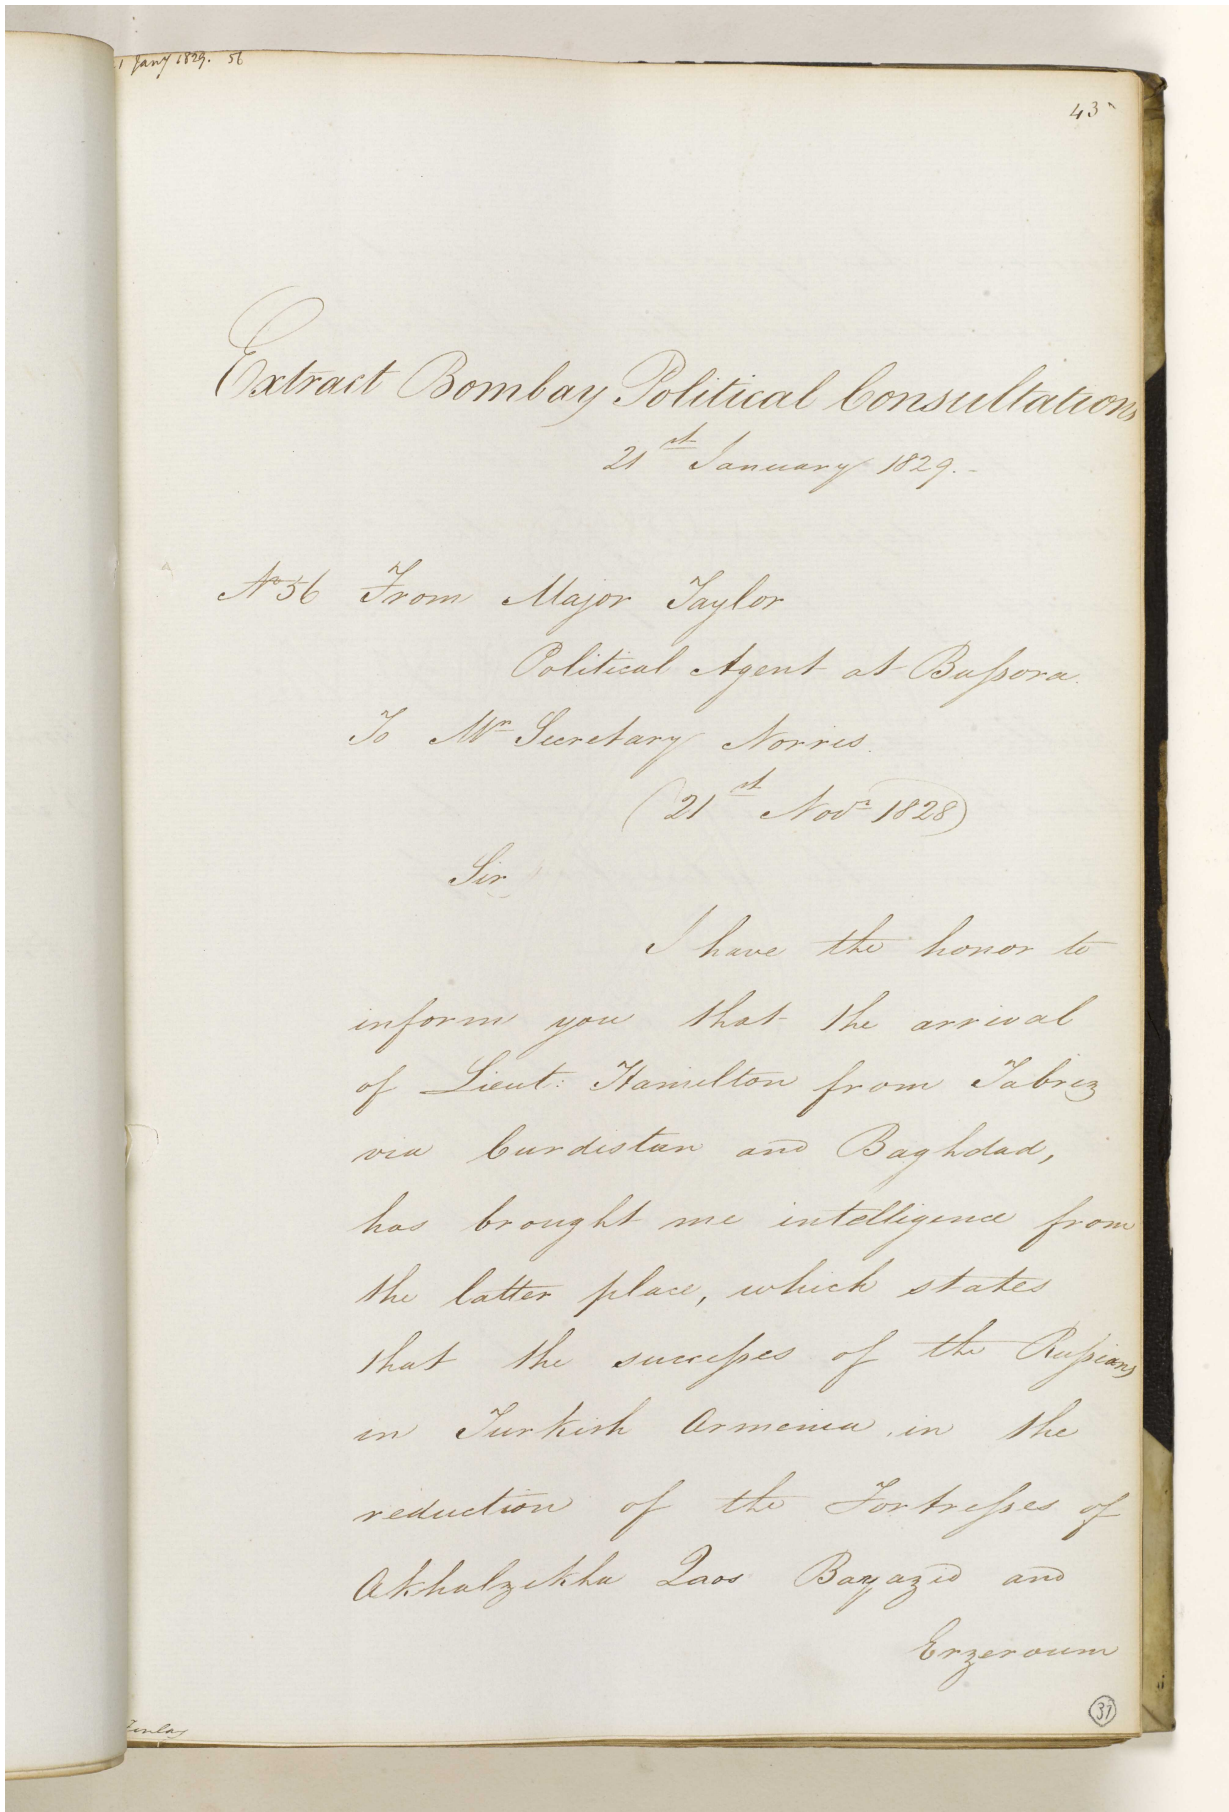 1 Jany 1829. 56
43
Extract Bombay Political Consultations
21st January 1829.-
No 56 From Major Taylor
Political Agent at Bassora.
To Mr Secretary Norris.
(21st Novr 1828)
Sir
I have the honor to
inform you that the arrival
of Lieut: Hamilton from Tabriz
via Curdistan and Baghdad,
has brought me intelligence from
the latter place, which states
that the successes of the Russians
in Turkish Armenia, in the
reduction of the Fortresses of
Akhalzikha Qaos Bayazid and
Erzeroum
37